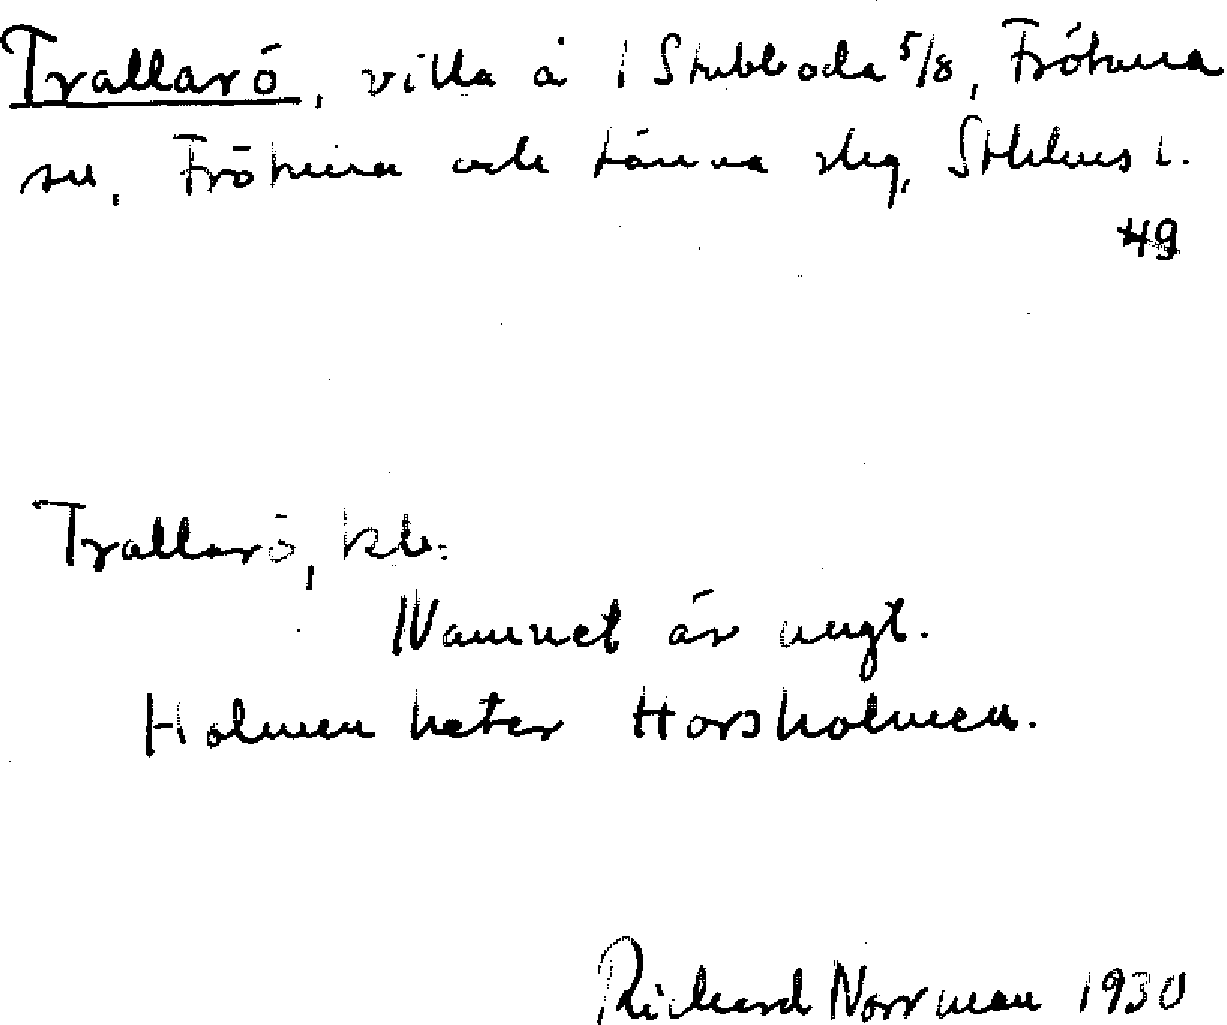 Trallarö, villa å 1 Stubboda 5/8, Frötuna
sn, Frötuna och Länna slg, Sthlms l.
49
Trallarö, kb:
Namnet är ungt.
Holmen heter Horsholmen.
Richard Norrman 1930